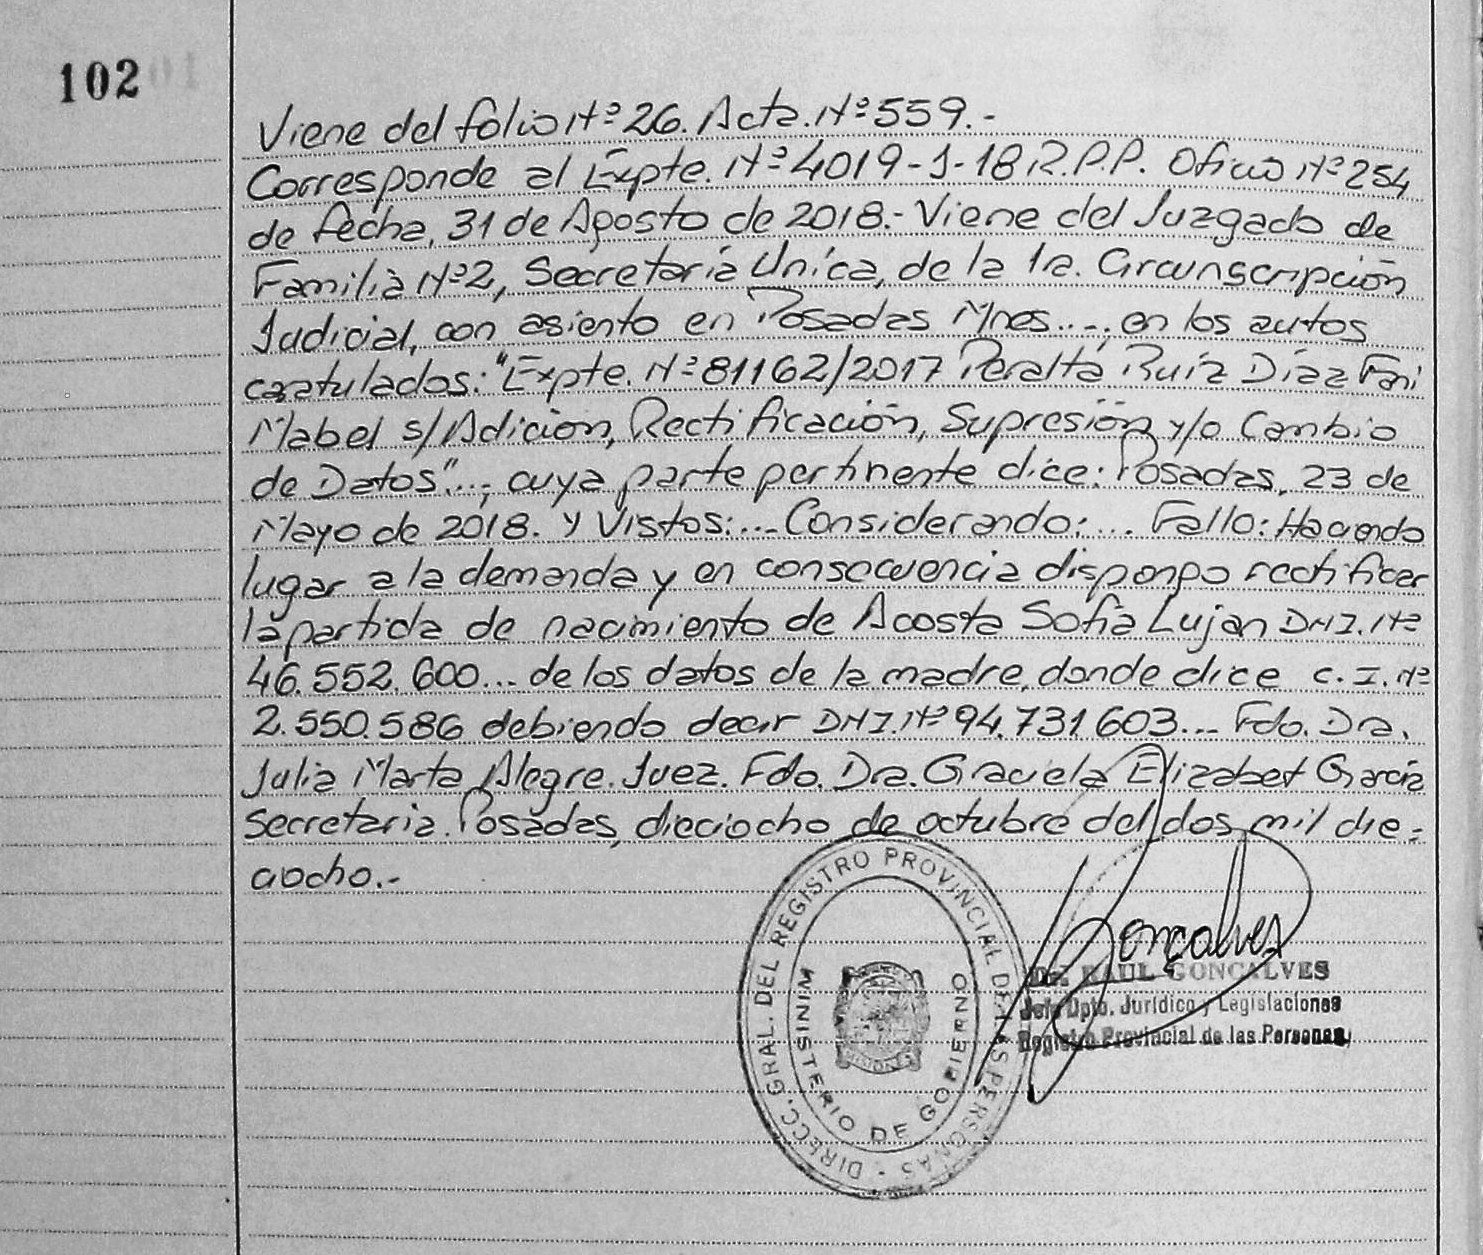 102
Viene del folio Nº 26. Acta. Nº 559.-
Corresponde al Expte. Nº 4019-J-18 R.P.P. Oficio Nº 254
de fecha, 31 de Agosto de 2018.- Viene del Juzgado de
Familia Nº 2, Secretaría Única, de la 1ra. Circunscripción
Judicial, con asiento en Posadas Mnes.... en los autos
caratulados: "Expte. Nº 81162/2017 Peralta Ruíz Díaz
Mabel s/Adición, Rectificación, Supresión y/o Cambio
de Datos"..., cuya parte pertinente dice: Posadas, 23 de
Mayo de 2018. Y Vistos:... Considerando:... Fallo: Haciendo
lugar a la demanda y en consecuencia dispongo rectificar
la partida de nacimiento de Acosta Sofía Lujan DNI. Nº
46.552.600... de los datos de la madre, donde dice C.I. Nº
2.550.586 debiendo decir DNI. Nº 94.731.603... Fdo. Dra.
Julia Marta Alegre. Juez. Fdo. Dra. Graciela Elizabet García
Secretaria. Posadas, dieciocho de octubre del dos mil die-
ciocho.-
DIRECC. GRAL. DEL REGISTRO PROVINCIAL DE LAS PERSONAS -
MINISTERIO DE GOBIERNO
MISIONES
Gonçalves
Dr. RAUL GONCALVES
Jefe Dpto. Jurídico y Legislaciones
Registro Provincial de las Personas